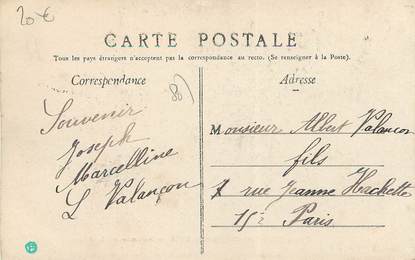 20 €
CARTE POSTALE
Tous les pays étrangers n'acceptent pas la correspondance au recto. (Se renseigner à la Poste).
Correspondance
Adresse
80
Souvenir
Joseph
Marcelline
L Valançon
Monsieur Albert Valançon
fils
7 rue Jeanne Hachette
15e Paris